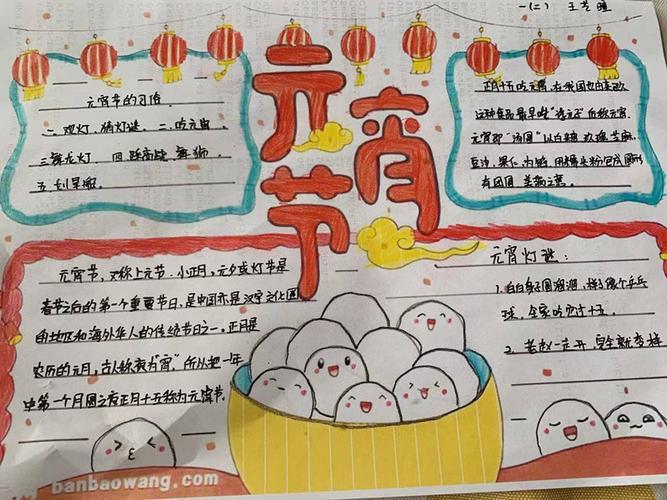 一(二) 王艺瞳
元宵节
元宵节的习俗
一.观灯、猜灯谜. 二.吃元宵.
三舞龙灯. 四.踩高跷 舞狮.
五.划旱船.
正月十五吃元宵,在我国也由来已
这种食品最早叫"浮元子"后称元宵.
元宵即"汤圆"以白糖 玫瑰 芝麻.
豆沙,果仁,为馅.用糯米粉包成圆形
有团圆 美满之意.
元宵节,又称上元节.小正月,元夕或灯节是
春节之后的第一个重要节日,是中国亦是汉字文化圈
的地区和海外华人的传统节日之一.正月是
农历的元月,古人称夜为"宵"所以把一年
中第一个月圆之夜正月十五称为元宵节.
元宵灯谜:
1.白白身子圆溜溜,
球,全家吃它过十五.
2.
banbaowang.com